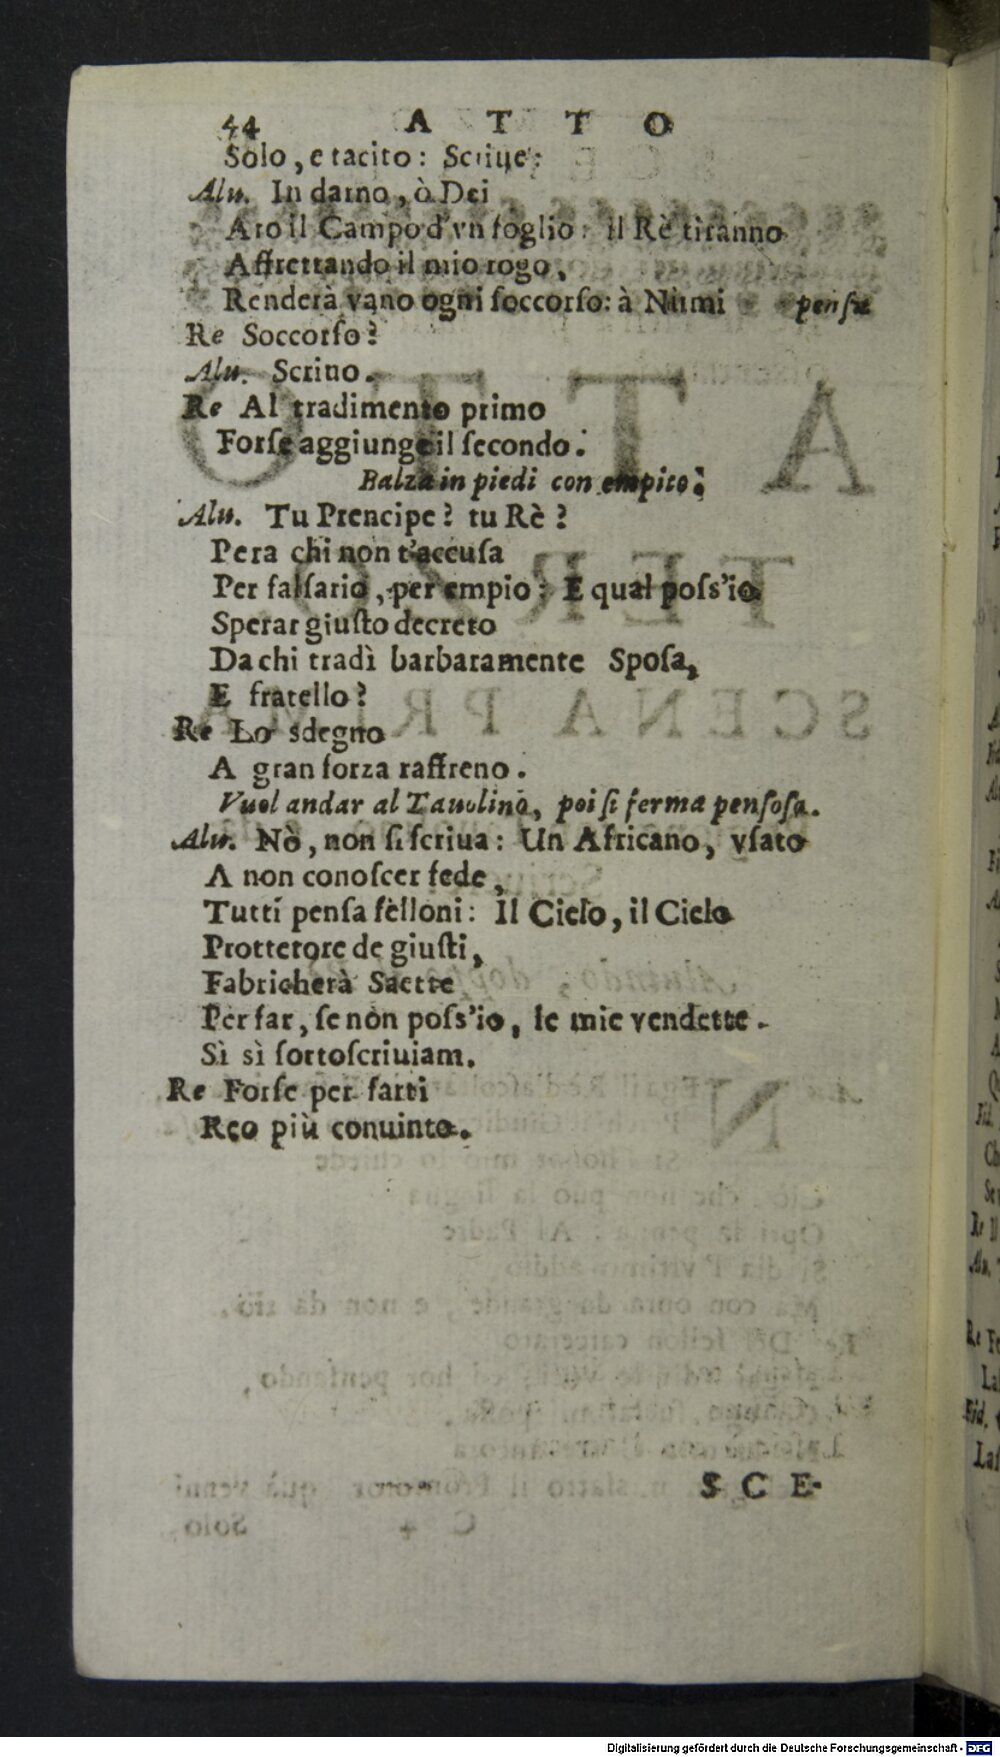 44 A T T O
Solo, e tacito: Scriue:
Alu. In darno, ò Dei
Aro il Campo d'vn foglio: il Rè tiranno
Affrettando il mio rogo,
Renderà vano ogni ſoccorſo: à Numi penſa
Re Soccorſo?
Alu. Scriuo.
Re Al tradimento primo
Forſe aggiunge il ſecondo.
Balza in piedi con empito.
Alu. Tu Prencipe? tu Rè?
Pera chi non t'accuſa
Per falſario, per empio: E qual poſs'io
Sperar giuſto decreto
Da chi tradì barbaramente Spoſa,
E fratello?
Re Lo sdegno
A gran forza raffreno.
Vuol andar al Tauolino, poi ſi ferma penſoſa.
Alu. Nò, non ſi ſcriua: Un Africano, vſato
A non conoſcer fede,
Tutti penſa fèlloni: Il Cielo, il Cielo
Prottetore de giuſti,
Fabricherà Saette
Per far, ſe non poſs'io, le mie vendette.
Sì sì ſottoſcriuiam.
Re Forſe per farti
Reo più conuinto.
S C E-
Digitalisierung gefördert durch die Deutsche Forschungsgemeinschaft - DFG